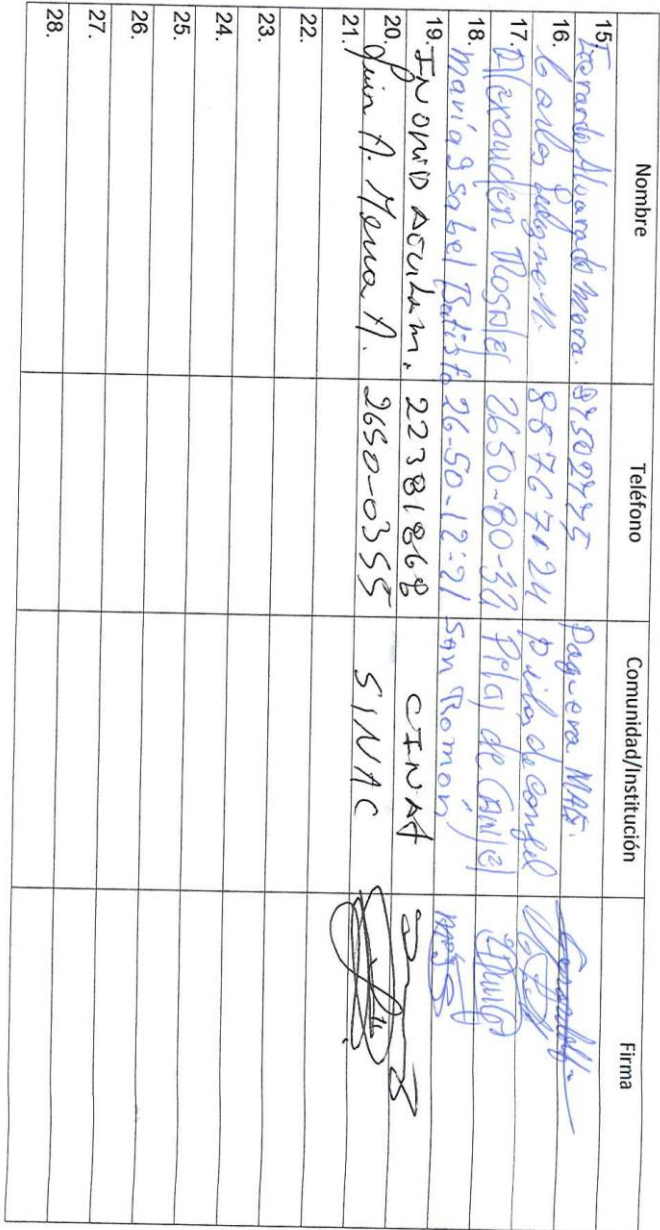 Nombre Teléfono Comunidad/Institución Firma
15. Gerardo Alvarado Mora. 84502445 Paquera MAG.
16. Carlos 88767124 Pilas de Cangel
17. Alexander Rosales 2650-80-32 Pilas de Canjel
18. Maria Isabel Batista 26-50-12-21 San Ramón
19.
20. 22381868
21. A. Mena A. 2650-0355 SINAC
22.
23.
24.
25.
26.
27.
28.